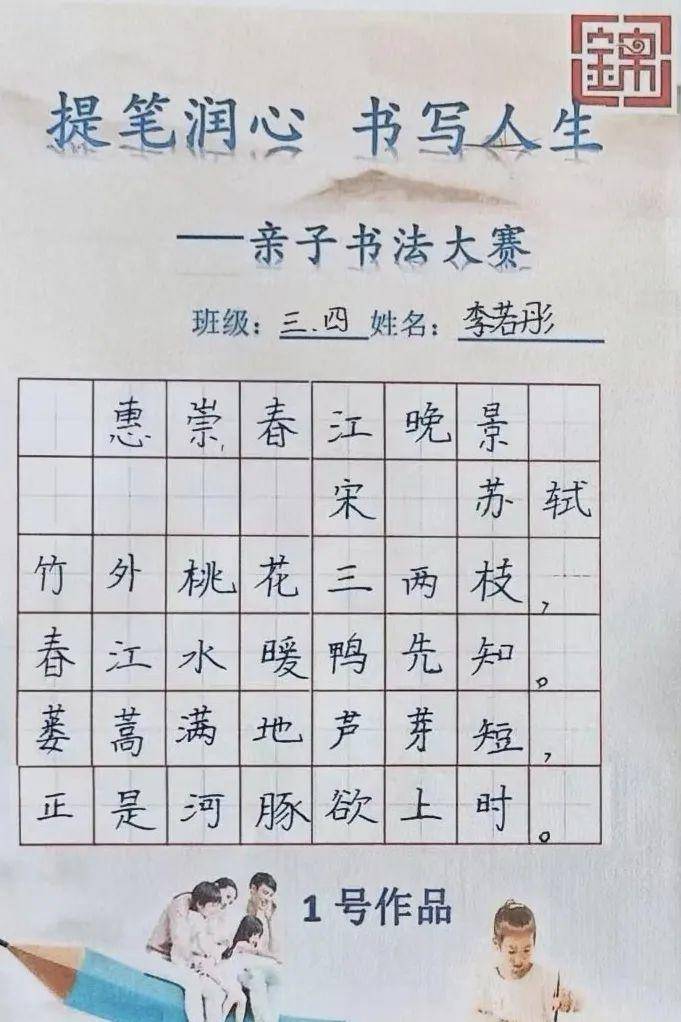 錦
提笔润心 书写人生
——亲子书法大赛
班级：三.四 姓名：李若彤
惠崇春江晚景
宋 苏轼
竹外桃花三两枝，
春江水暖鸭先知。
蒌蒿满地芦芽短，
正是河豚欲上时。
1号作品